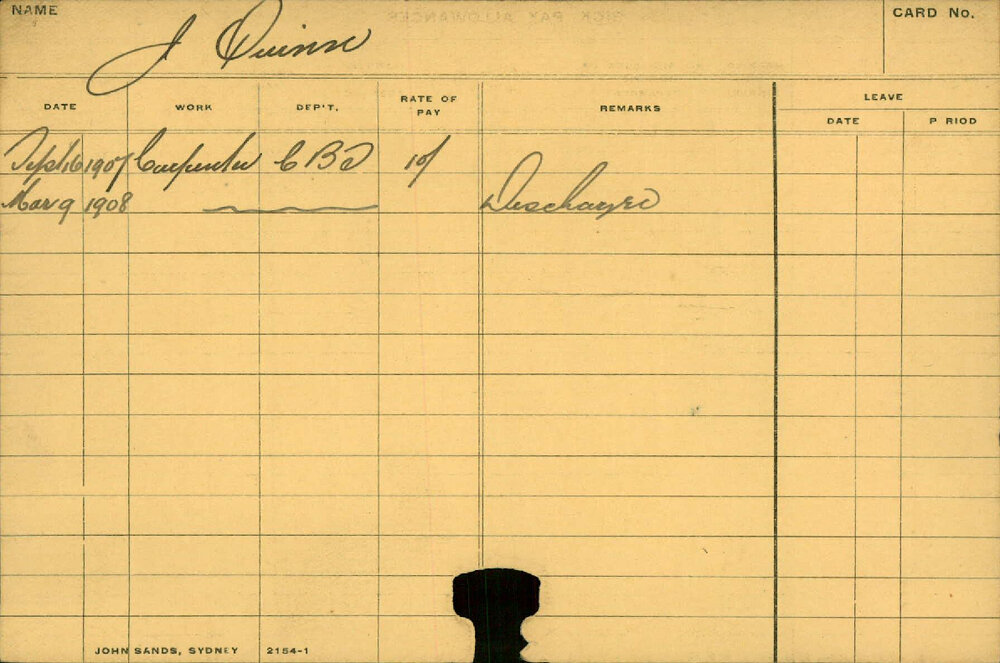 NAME J Quinn CARD No.
DATE WORK DEP'T. RATE OF PAY REMARKS LEAVE
DATE P RIOD
Sept 16 1907 Carpenter 10/
Mar 9 1908 Discharged
JOHN SANDS, SYDNEY 2154-1